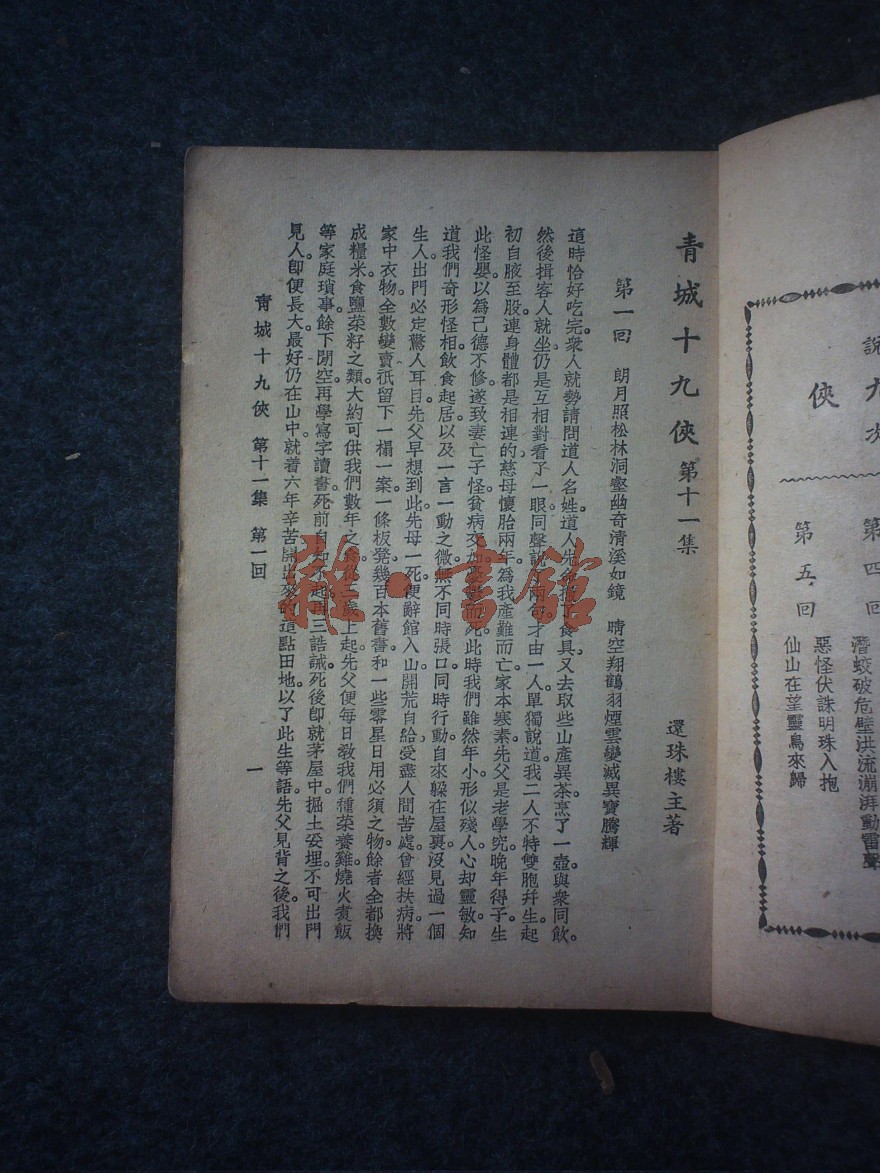 說
九
次
俠
第四回
潛蛟破危壁洪流澎湃動雷聲
第五回
惡怪伏誅明珠入抱
仙山在望靈鳥來歸
青城十九俠 第十一集
還珠樓主著
第一回 朗月照松林洞壑幽奇清溪如鏡 晴空翔鶴羽煙雲變滅異寶騰輝
這時恰好吃完。衆人就勢請問道人名姓。道人先了食具。又去取些山產異茶。烹了一壺。與衆同飲。
然後揖客人就坐。仍是互相對看了一眼。同聲說了兩句。才由一人單獨說道。我二人不特雙胞幷生。起
初自腋至股。連身體都是相連的。慈母懷胎兩年。爲我產難而亡。家本寒素。先父是老學究。晚年得子。生
此怪嬰。以為己德不修。遂致妻亡子怪。貧病交加。而死。此時我們雖然年小。形似殘人。心却靈敏。知
道我們奇形怪相。飲食起居。以及一言一動之微。無不同時張口。同時行動。自來躲在屋裏。沒見過一個
生人。出門必定驚人耳目。先父早想到此。先母一死。便辭館入山。開荒自給。受盡人間苦處。曾經扶病將
家中衣物。全數變賣。祇留下一榻一案一條板凳幾百本舊書。和一些零星日用必須之物。餘者全都換
成糧米食鹽菜籽之類。大約可供我們數年之食。從三歲上起。先父便每日敎我們種菜養雞燒火煮飯
等家庭瑣事。餘下閒空。再學寫字讀書。死前自知不起。再三誥誡。死後卽就茅屋中掘土妥埋。不可出門
見人。卽便長大。最好仍在山中。就着六年辛苦開出來的這點田地。以了此生等語。先父見背之後。我們
青城十九俠 第十一集 第一回
一
雜·書館